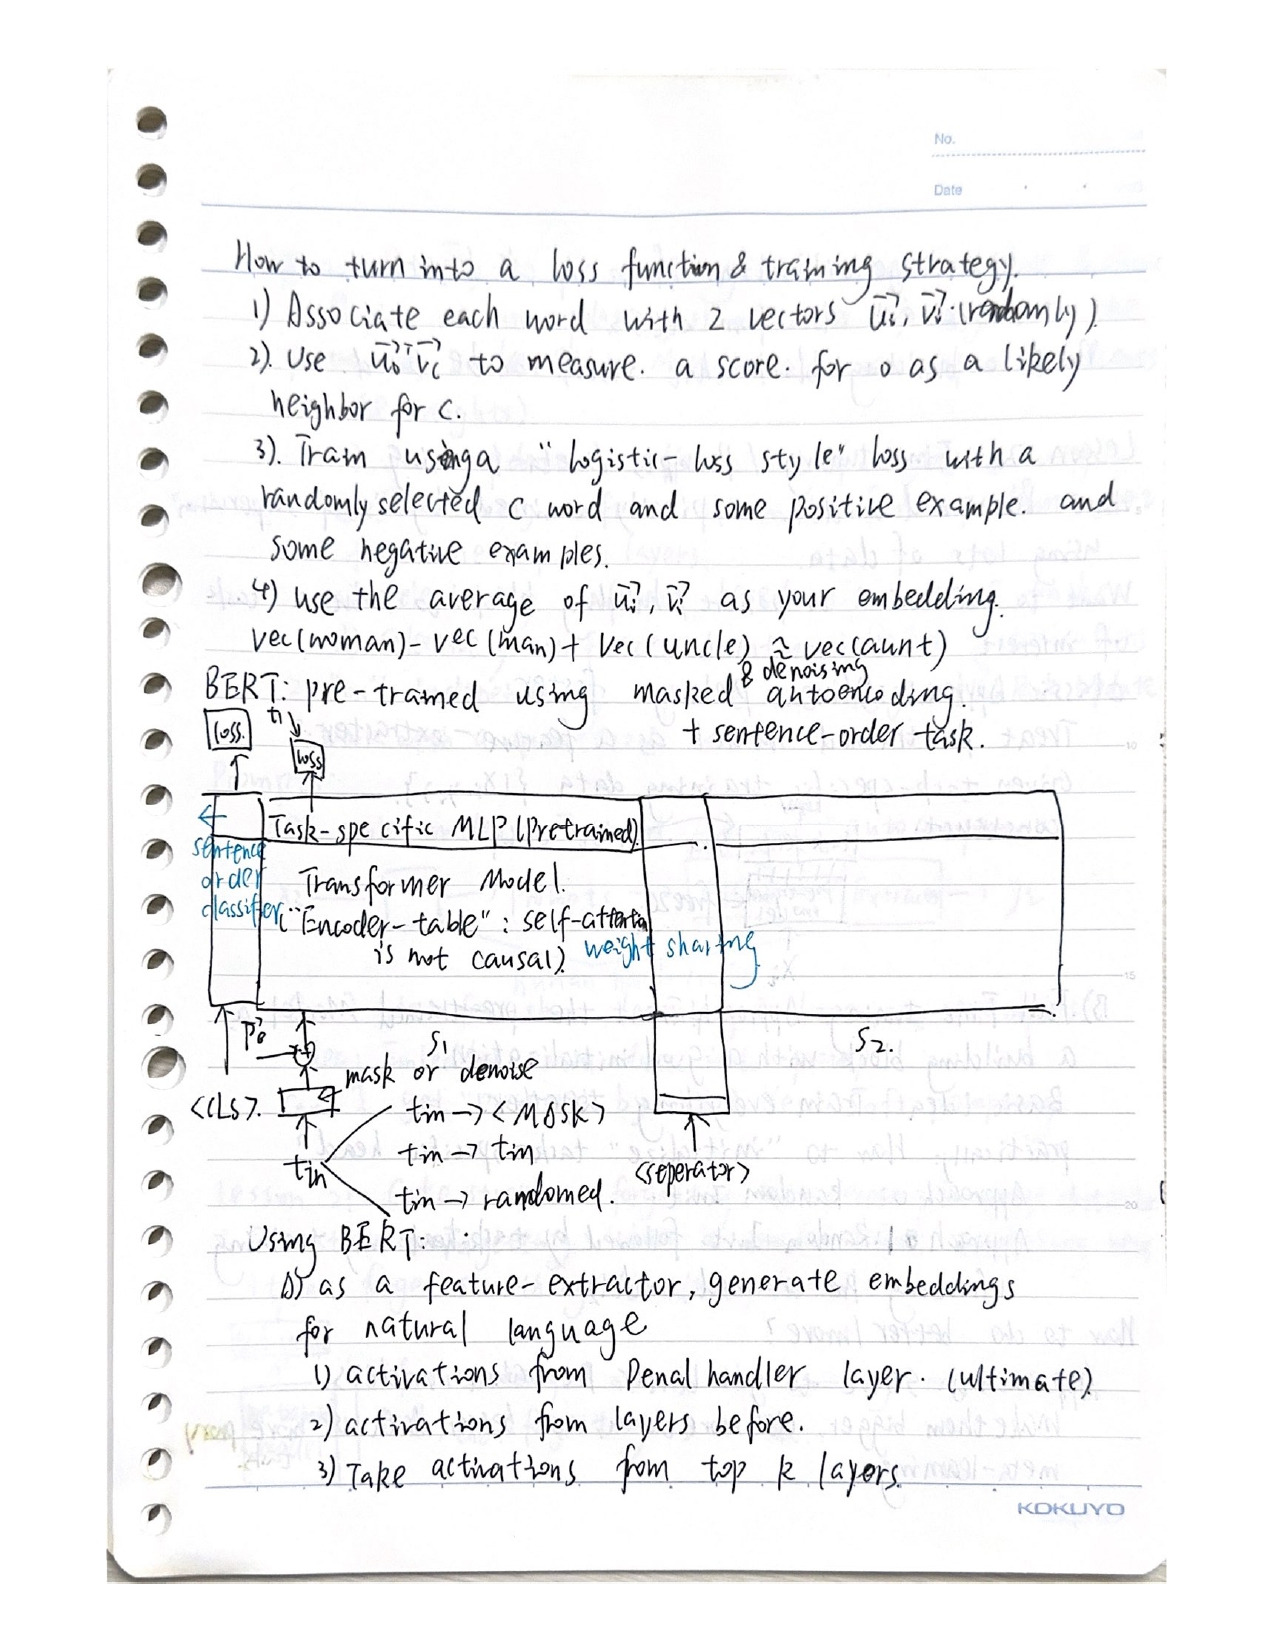 No.
Date
How to turn into a loss function & training strategy.
1) Associate each word with 2 vectors u⃗i, v⃗i (randomly)
2). Use u⃗oᵀv⃗c to measure. a score. for o as a likely
neighbor for c.
3). Train using a "logistic-loss style" loss with a
randomly selected c word and some positive example. and
some negative examples.
4) use the average of u⃗i, v⃗i as your embedding.
vec(woman) - vec(man) + vec(uncle) ≈ vec(aunt)
& denoising
BERT: pre-trained using masked autoencoding.
+ sentence-order task.
loss.
ti
loss
Task-specific MLP (Pretrained)
sentence
order
classifier
Transformer Model.
("Encoder-table": self-attention
is not causal)
weight sharing
Pe
S1
S2.
mask or denoise
<CLS>.
tin → <MASK>
tin → tin
tin
<seperator>
tin → randomed.
Using BERT:
1) as a feature-extractor, generate embeddings
for natural language
1) activations from Penalhandler layer. (ultimate)
2) activations from layers before.
3) Take activations from top k layers.
KOKUYO